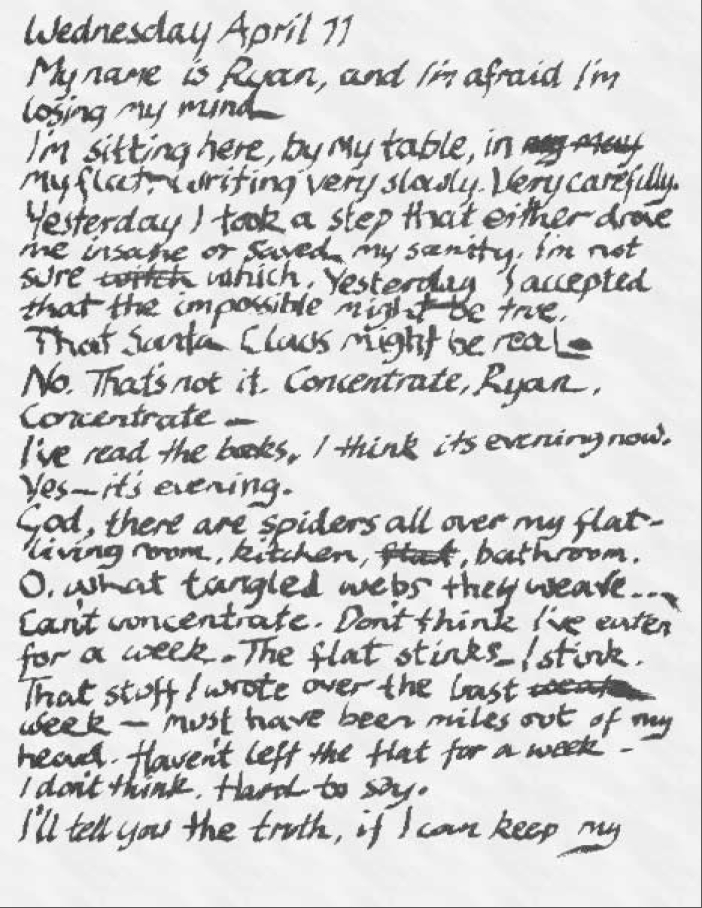 Wednesday April 11
My name is Ryan, and I'm afraid I'm
losing my mind
I'm sitting here, by my table, in my may
my flat, writing very slowly. Very carefully.
Yesterday I took a step that either drove
me insane or saved my sanity. I'm not
sure witch which. Yesterday I accepted
that the impossible might be true.
That Santa Claus might be real
No. That's not it. Concentrate, Ryan.
Concentrate —
I've read the books, I think its evening now.
Yes — it's evening.
God, there are spiders all over my flat -
living room, kitchen, flat, bathroom.
O, what tangled webs they weave...
Can't concentrate. Don't think I've eaten
for a week. The flat stinks - I stink.
That stuff I wrote over the last
week — must have been miles out of my
head. Haven't left the flat for a week -
I don't think. Hard to say.
I'll tell you the truth, if I can keep my